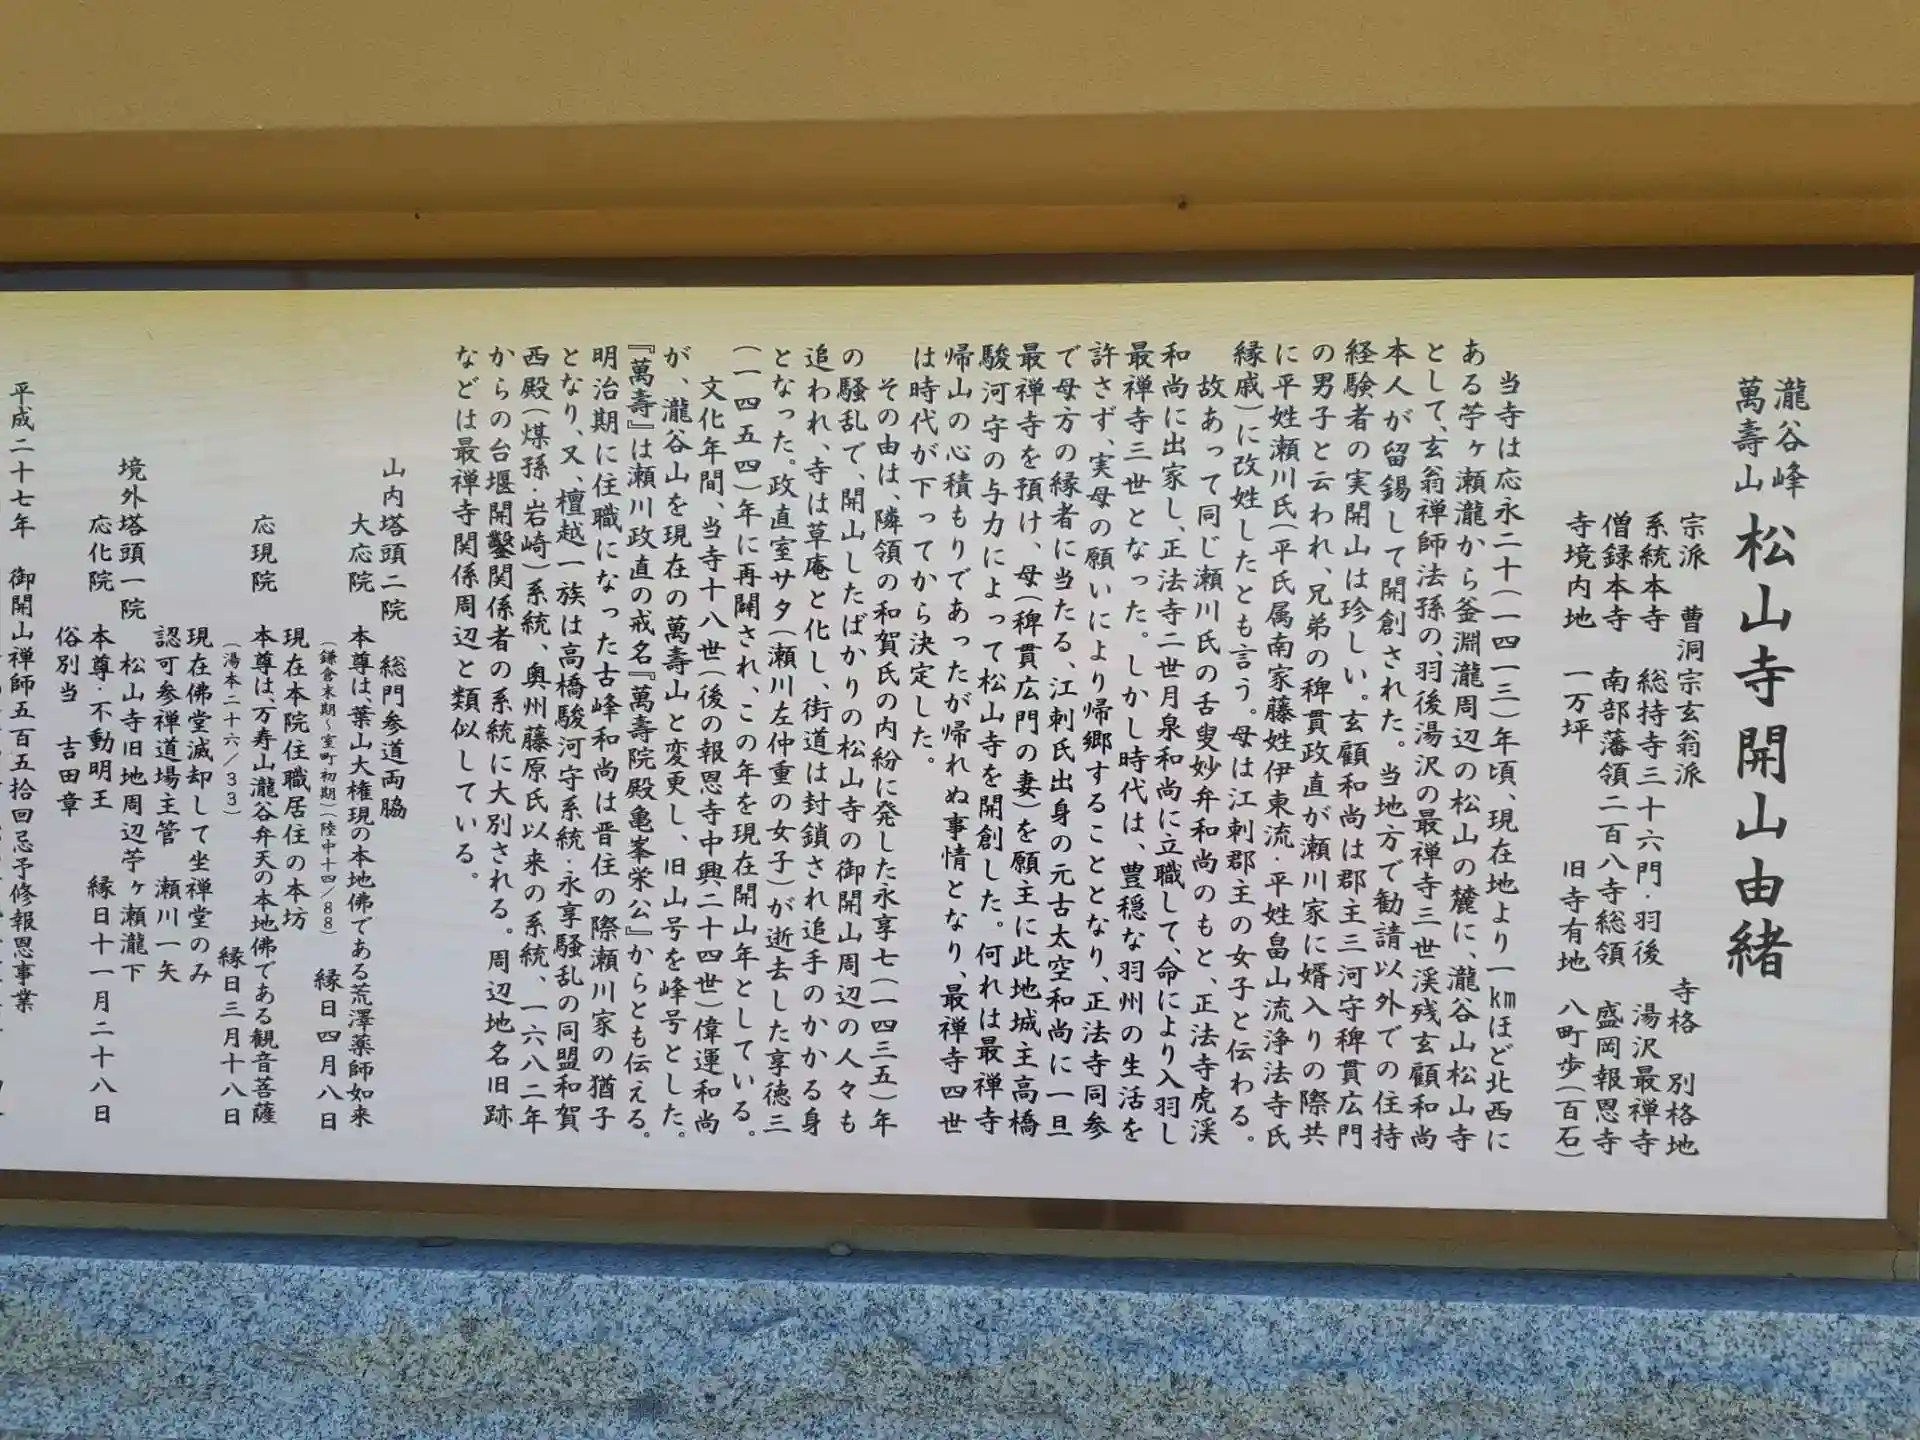 瀧谷峰
萬壽山 松山寺開山由緒
宗派 曹洞宗玄翁派 寺格 別格地
系統本寺 総持寺三十六門・羽後 湯沢最禅寺
僧録本寺 南部藩領二百八寺総領 盛岡報恩寺
寺境内地 一万坪 旧寺有地 八町歩(百石)
当寺は応永二十(一四一三)年頃、現在地より一kmほど北西に
ある苧ヶ瀬瀧から釜淵瀧周辺の松山の麓に、瀧谷山松山寺
として、玄翁禅師法孫の、羽後湯沢の最禅寺三世渓残玄顧和尚
本人が留錫して開創された。当地方で勧請以外での住持
経験者の実開山は珍しい。玄顧和尚は郡主三河守稗貫広門
の男子と云われ、兄弟の稗貫政直が瀬川家に婿入りの際共
に平姓瀬川氏(平氏属南家藤姓伊東流・平姓畠山流浄法寺氏
縁戚)に改姓したとも言う。母は江刺郡主の女子と伝わる。
故あって同じ瀬川氏の舌叟妙弁和尚のもと、正法寺虎渓
和尚に出家し、正法寺二世月泉和尚に立職して、命により入羽し
最禅寺三世となった。しかし時代は、豊穏な羽州の生活を
許さず、実母の願いにより帰郷することとなり、正法寺同参
で母方の縁者に当たる、江刺氏出身の元古太空和尚に一旦
最禅寺を預け、母(稗貫広門の妻)を願主に此地城主高橋
駿河守の与力によって松山寺を開創した。何れは最禅寺
帰山の心積もりであったが帰れぬ事情となり、最禅寺四世
は時代が下ってから決定した。
その由は、隣領の和賀氏の内紛に発した永享七(一四三五)年
の騒乱で、開山したばかりの松山寺の御開山周辺の人々も
追われ、寺は草庵と化し、街道は封鎖され追手のかかる身
となった。政直室サタ(瀬川左仲重の女子)が逝去した享徳三
(一四五四)年に再開され、この年を現在開山年としている。
文化年間、当寺十八世(後の報恩寺中興二十四世)偉運和尚
が、瀧谷山を現在の萬壽山と変更し、旧山号を峰号とした。
『萬壽』は瀬川政直の戒名『萬壽院殿亀峯栄公』からとも伝える。
明治期に住職になった古峰和尚は晋住の際瀬川家の猶子
となり、又、檀越一族は高橋駿河守系統・永享騒乱の同盟和賀
西殿(煤孫・岩崎)系統、奥州藤原氏以来の系統、一六八二年
からの台堰開鑿関係者の系統に大別される。周辺地名旧跡
などは最禅寺関係周辺と類似している。
山内塔頭二院 総門参道両脇
大応院 本尊は、葉山大権現の本地佛である荒澤薬師如来
(鎌倉末期~室町初期)(陸中十四/88) 縁日四月八日
現在本院住職居住の本坊
応現院 本尊は、万寿山瀧谷弁天の本地佛である観音菩薩
(湯本二十六/33) 縁日三月十八日
現在佛堂滅却して坐禅堂のみ
認可参禅道場主管 瀬川一矢
境外塔頭一院 松山寺旧地周辺苧ヶ瀬瀧下
応化院 本尊・不動明王 縁日十一月二十八日
俗別当 吉田章
平成二十七年 御開山禅師五百五拾回忌予修報恩事業